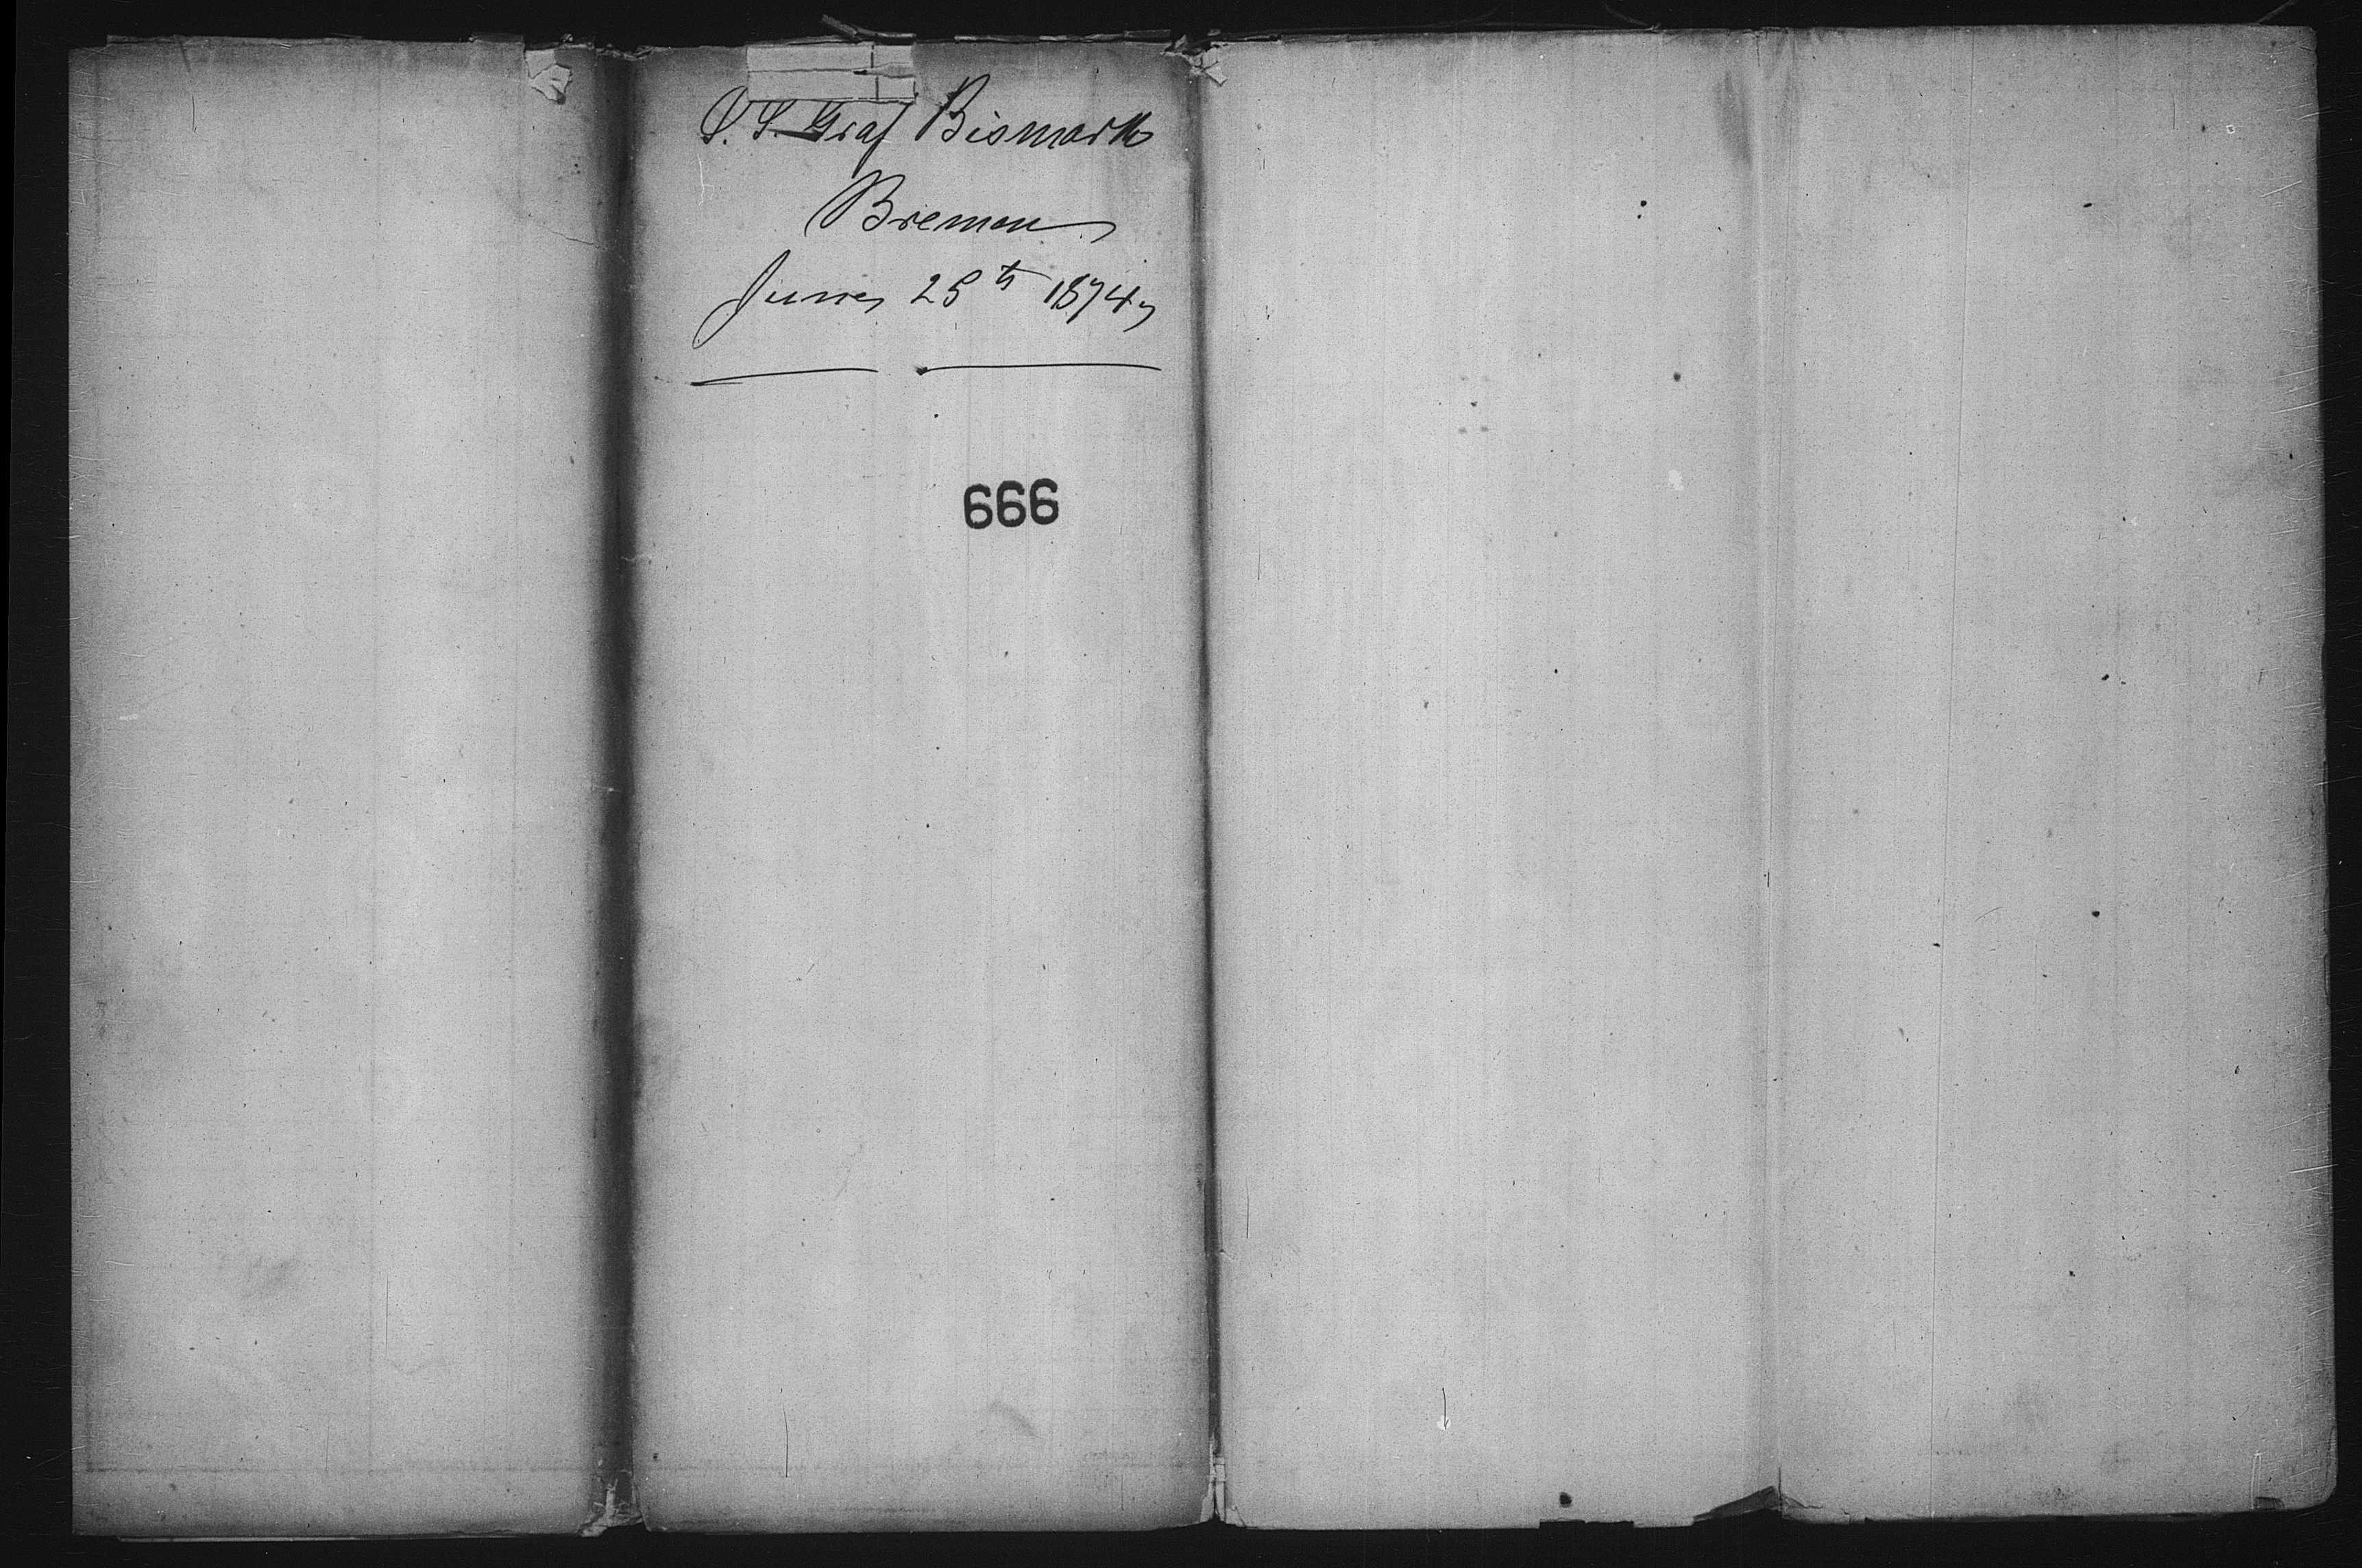 S. S. Graf Bismark
Bremen
June 25th 1874
666